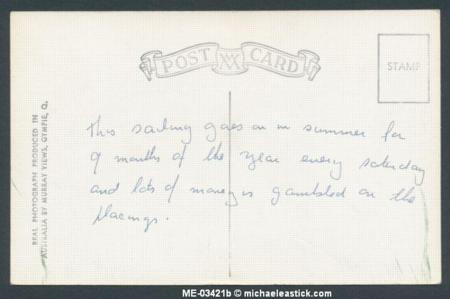 POST CARD
STAMP
REAL PHOTOGRAPH PRODUCED IN
AUSTRALIA BY MURRAY VIEWS, GYMPIE, Q.
This sailing goes on in summer for
9 months of the year every saturday
and lots of money is gambled on the
placings.
ME-03421b © michaeleastick.com